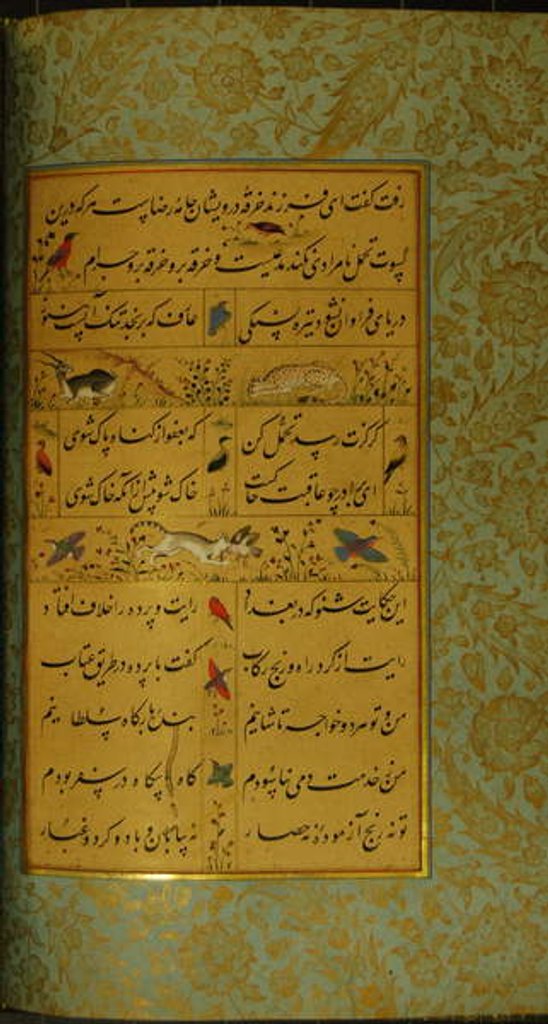 رفت گفت ای فرزند خرقه درویشان جامه رضاست هر که درین
کسوت تحمل نامرادی نکند مدعیست و خرقه برو خرقه برو حرام
دریای فراوان نشود تیره بسنگی عارف که برنجد تنک آبست هنوز
گر گزندت رسد تحمل کن که بعفو از گناه پاک شوی
ای برادر چو عاقبت خاکست خاک شو پیش از آنکه خاک شوی
این حکایت شنو که در بغداد رایت و پرده را خلاف افتاد
رایت از گرد راه و رنج رکاب گفت با پرده در طریق عتاب
من و تو هر دو خواجه تاشانیم بنده بارگاه سلطانیم
من ز خدمت دمی نیاسودم گاه و بیگاه در سفر بودم
تو نه رنج آزموده نه حصار نه بیابان و باد و گرد و غبار